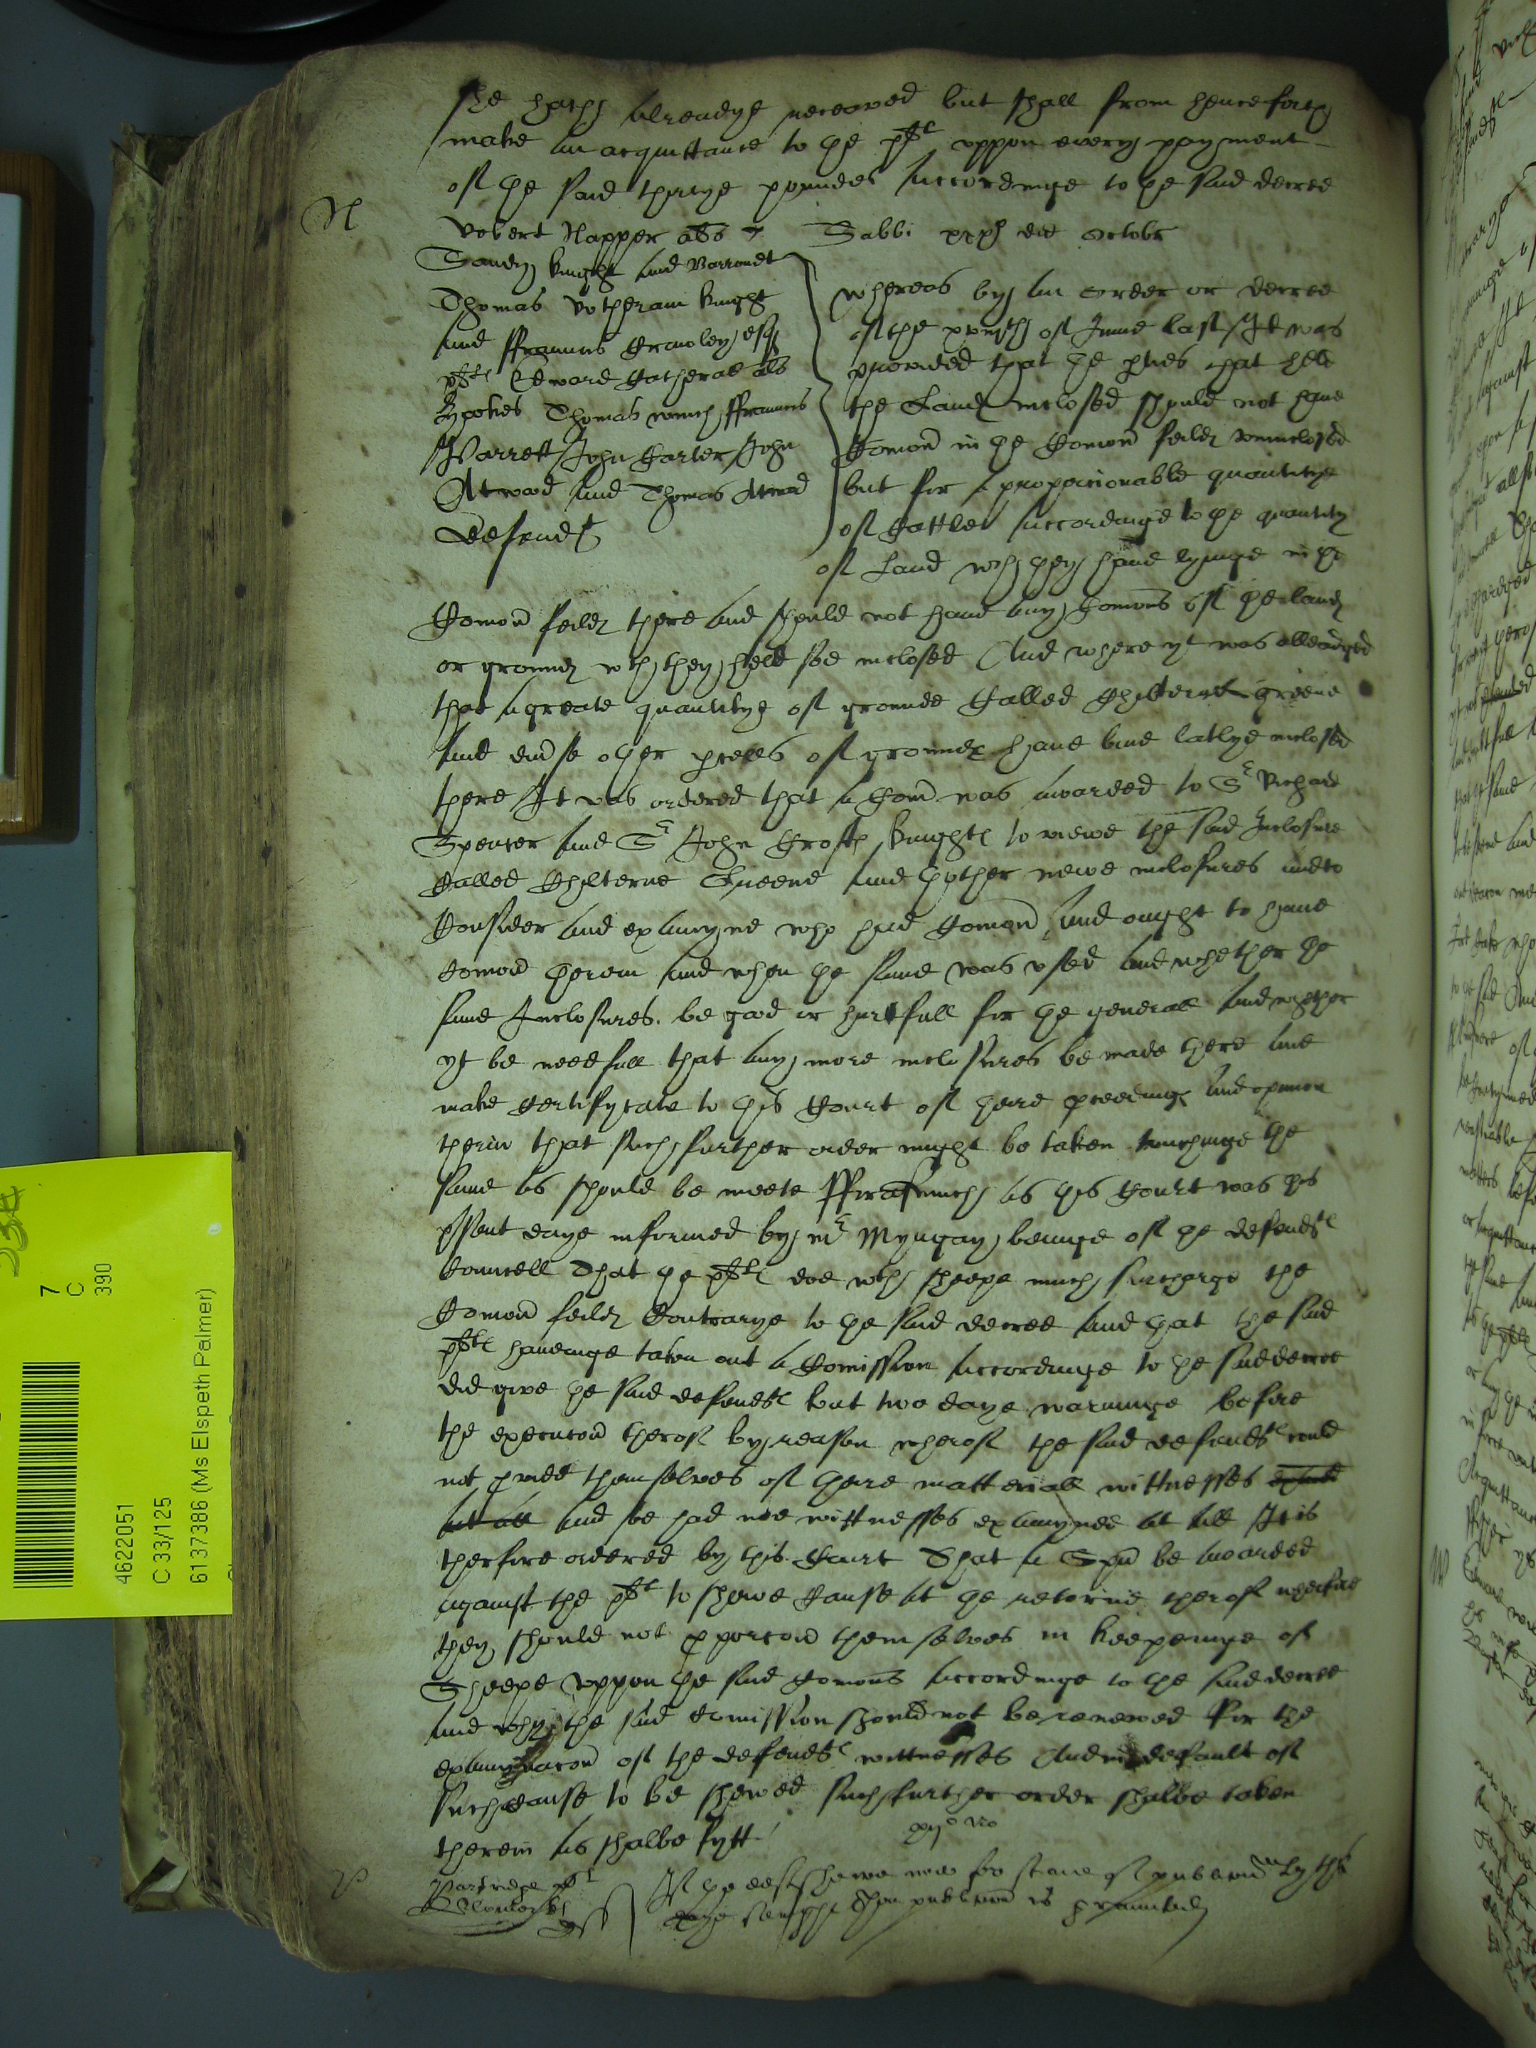 she hath alreadye receaved but shall from henceforth
make an acquittance to the plt uppon every payment
of the said thirtye poundes accordinge to the said decree
N
Robert Napper als Sabbi die Octobr
Sandy knight and Barronet
Thomas Rotheram knight
and ffrauncis Crawley esq
plts Edward Catherall als
Spokes Thomas winch ffrauncis
Barrett John Carter John
Atwood and Thomas Atwood
Defendts
whereas by an order or decree
of the of June last It was
provided that the pties that held
the Lands inclosed should not have
Comon in the Comon feilds uninclosed
but for a proporcionable quantitye
of Cattle accordinge to the quantity
of Land wch they have lyinge in the
Comon feilds there and should not have any Comons of the lands
or grounds wch they held soe inclosed And where yt was alleadged
that a greate quantitye of grounde Called Chilterne greene
and divse other pcells of grounds have bine latlye inclosed
there It was ordered that a Comn was awarded to Sr Richard
Spencer and Sr John Crofts knights to viewe the said Inclosure
Called Chilterne Greene and thother newe inclosures and to
Consider and examyne who had Comon and ought to have
Comon therein and when the same was used and whether the
same Inclosures be good or hurtfull for the generall and whether
yt be needfull that any more inclosures be made there and
make Certifycate to this Court of there pceedings and opinion
therin that such further order might be taken touchinge the
same as should be meete fforasmuch as this Court was this
psent daye informed by mr Myngay beinge of the defendts
Councell That the plts doe wth sheepe much surcharge the
Comon feilds Contrarye to the said decree and that the said
plts havinge taken out a Comission accordinge to the said decree
did give the said defendts but two daye warninge before
the execucon therof by reason wherof the said defendts could
not pvide themselves of there matteriall wittnesses
at all and soe had noe wittnesses examyned at all It is
therfore ordered by this Court That a Spa be awarded
against the plts to shewe Cause at the retorne therof wherfore
they should not pporcon themselves in keepeinge of
Sheepe uppon the said Comons accordinge to the said decree
and why the said Comission should not be renewed for the
examynacon of the defendts wittnesses And in default of
such cause to be shewed such further order shalbe taken
therein as shalbe fytt
Partridge plt
deft
If the deft shewe noe cause of publicacon by this
daye then publicacon is graunted
4622051
C 33/125
6137386 (Ms Elspeth Palmer)
7
C
390